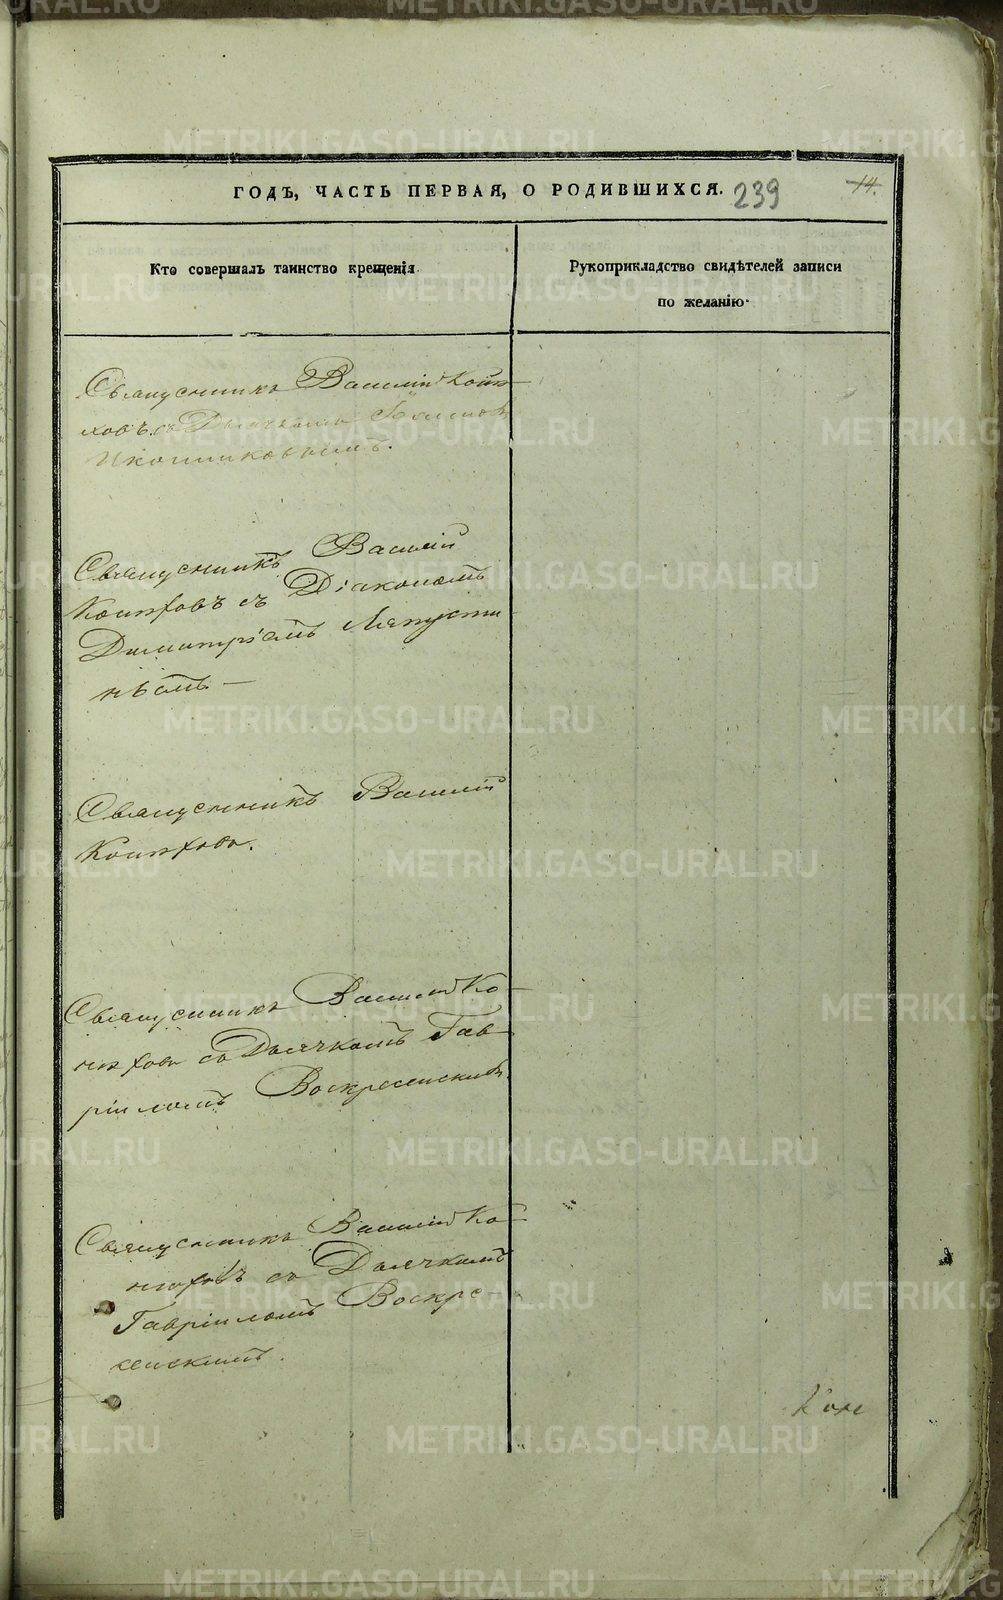 ГОДЪ, ЧАСТЬ ПЕРВАЯ, О РОДИВШИХСЯ. 239 14.
Кто совершалъ таинство крещенія.
Рукоприкладство свидѣтелей записи
по желанію.
Священникъ Василій Кони-
ховъ съ Дьячкомъ
Иконниковымъ.
Священникъ Василій
Кониховъ съ Діакономъ
Димитріемъ Ляпусти
нымъ —
Священникъ Василій
Кониховъ.
Священникъ Василій Ко-
ниховъ съ Дьячкомъ Гав-
ріиломъ Воскресенскимъ.
Священникъ Василій Ко-
ниховъ съ Дьячкомъ
Гавріиломъ Воскре-
сенскимъ.
METRIKI.GASO-URAL.RU